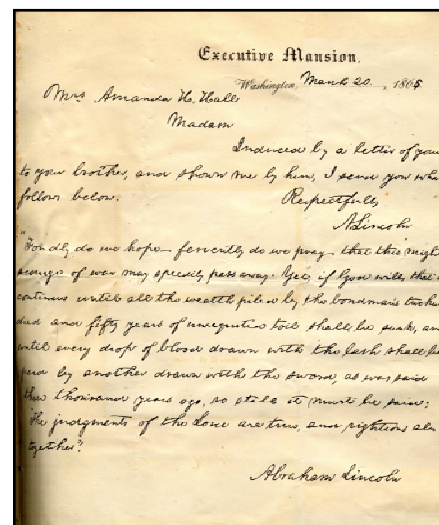 Executive Mansion.
Washington, March 20, 1865
Mrs. Amanda H. Hall
Madam
Induced by a letter of your
to your brother, and shown me by him, I send you what
follows below.
Respectfully
A. Lincoln
"Fondly do we hope— fervently do we pray— that this might
scourge of war may speedily pass away. Yet, if God wills that
continue until all the wealth piled by the bondman's two hun
dred and fifty years of unrequited toil shall be sunk, an
until every drop of blood drawn with the lash shall be
paid by another drawn with the sword, as was said
three thousand years ago, so still it must be said;
"the judgments of the Lord are true, and righteous al
together"
Abraham Lincoln